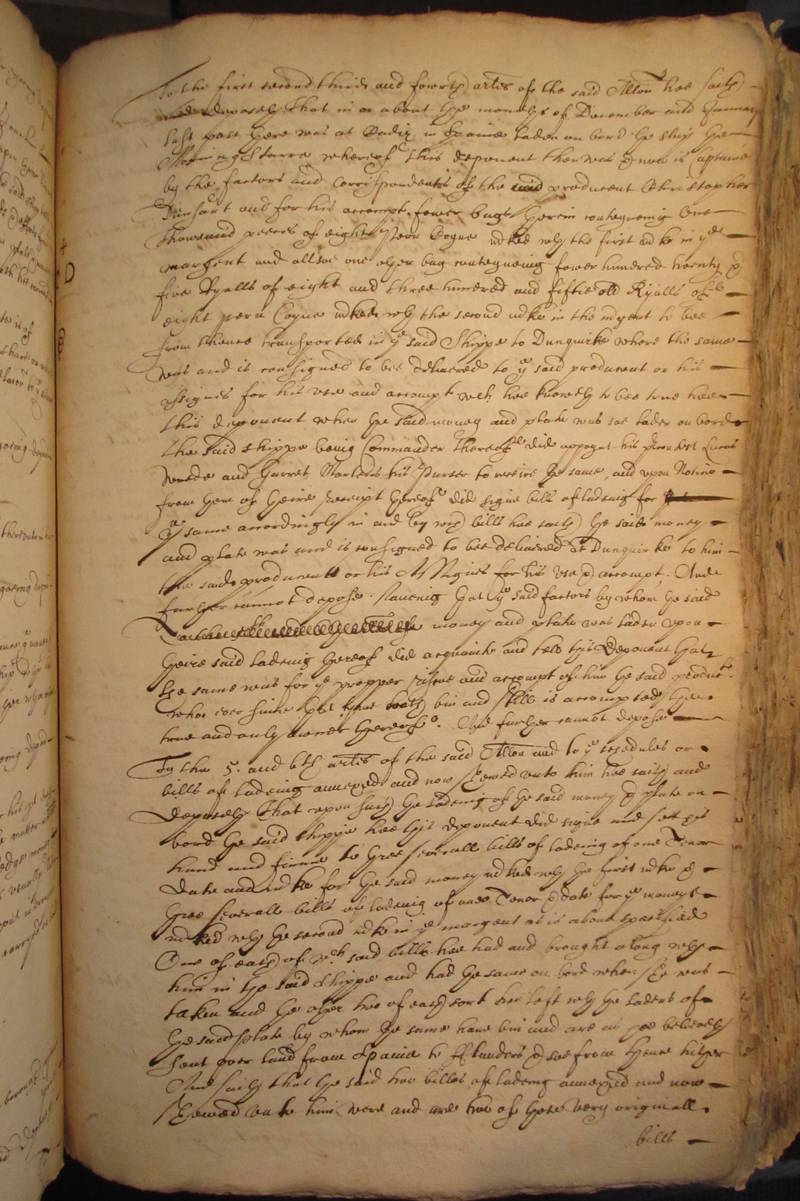 To the first second third and fowerth artes of the said Allon hee saith
and deposeth that in or about the moneths of December and January
last past there was at Cadiz in Spaine laden on bord the ship the
Morning Starre whereof this deponent then was & now is Captaine
by the factors and Correspondents of the said producent Christopher
and for his accompt fower bags therein conteyneing One
thousand peeces of eight Peru Coyne mked wth the first mke in ye
margent and alsoe one other bag conteyneing fower hundred twenty &
five Ryalls of eight and three hundred and fiftie old Ryalls of
eight peru Coyne mked wth the second mke in the margent to bee
from thence transported in ye said Shippe to Dunquirke where the same
was and is consigned to bee delivered to ye said producent or his
assignes for his use and accompt wch hee knoweth to bee true hee
this deponent when the said money and plate was soe laden on bord
the said shippe being Commander thereof did appoynt his
and Garret Martens his Purser to receive the same, and upon Notice
from them of theire receipt thereof did signe bills of lading for
ye same accordingly in and by wch bills hee saith the said money
and plate was and is consigned to bee delivered at Dunquirke to him
the said producent or his Assignes for his use & accompt. And
further cannot depose. Saveing that ye said factors by whom the said
money and plate was laden upon
theire said ladeing thereof did acquaint and tell this deponent that
the same was for ye propper risque and accompt of him the said producent
who ever since that tyme hath bin and still is accompted the
true and only owner thereof. And further cannot depose
To the 5. and 6th artes of the said Allon and to ye scedules or
bills of ladeing annexed and now shewed unto him hee saith and
deposeth that upon such the ladeing of the said money & plate on
bord the said shippe hee this deponent did signe and sett his
hand and firme to three severall bills of ladeing of one Tenor
date and mke for the said money mked wth the first mke &
three severall bills of ladeing of one Tenor & date for ye moneys
mked wth the second mke in ye margent as is above specified
One of each of wch said bills hee had and brought along with
him in the said shippe and had the same on bord when shee was
taken and the other two of each sort hee left wth the laders of
the said plate by whom the same have bin and are as hee beleeveth
sent over land from Spaine to Flanders & soe from thence hither
And saith that the said two bills of ladeing annexed and now
shewed unto him were and are two of those very originall
bills